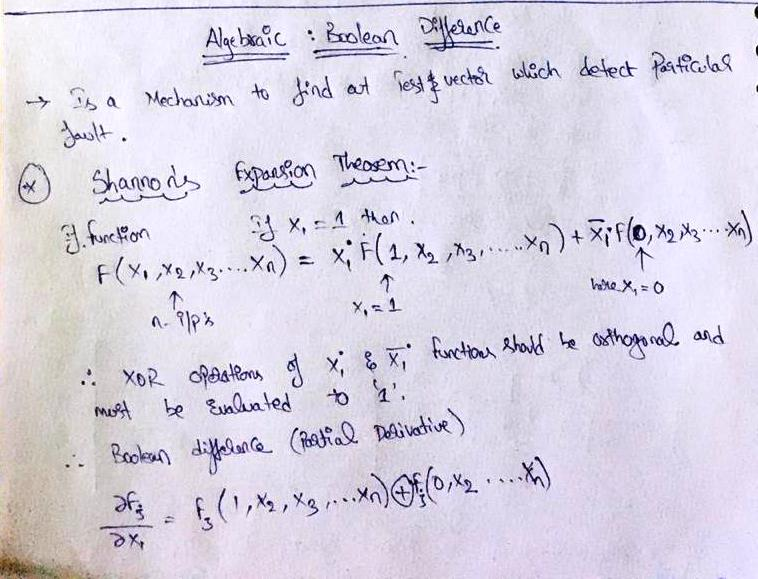 Algebraic : Boolean Difference
→ Is a Mechanism to find out Test & vector which detect Particular
fault.
* Shannon's Expansion Theorem:-
If function if x₁ = 1 then.
F(x₁,x₂,x₃....xₙ) = xᵢ F(1, x₂,x₃,.....xₙ) + x̄ᵢ F(0,x₂,x₃...xₙ)
↑ ↑ ↑
n-i/p's x₁=1 here x₁=0
∴ XOR operations of xᵢ & x̄ᵢ functions should be orthogonal and
must be Evaluated to '1'.
∴ Boolean difference (Partial Derivative)
∂f₃/∂x₁ = f₃(1,x₂,x₃,...xₙ) ⊕ f₃(0,x₂ .....xₙ)